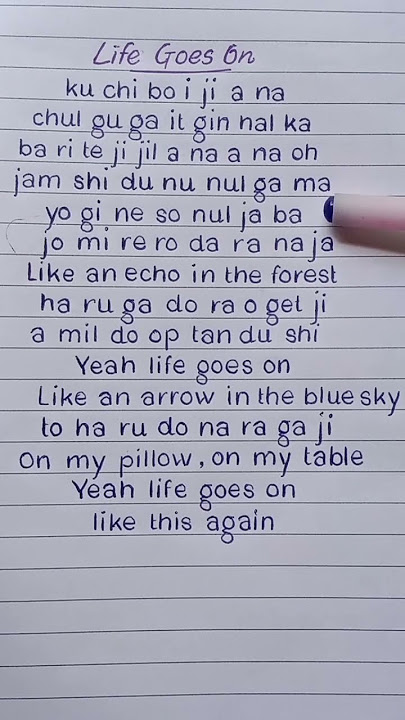 Life Goes On
ku chi bo i ji a na
chul gu ga it gin nal ka
ba ri te ji jil a na a na oh
jam shi du nu nul ga ma
yo gi ne so nul ja ba
jo mi re ro da ra na ja
Like an echo in the forest
ha ru ga do ra o get ji
a mil do op tan du shi
Yeah life goes on
Like an arrow in the blue sky
to ha ru do na ra ga ji
On my pillow, on my table
Yeah life goes on
like this again